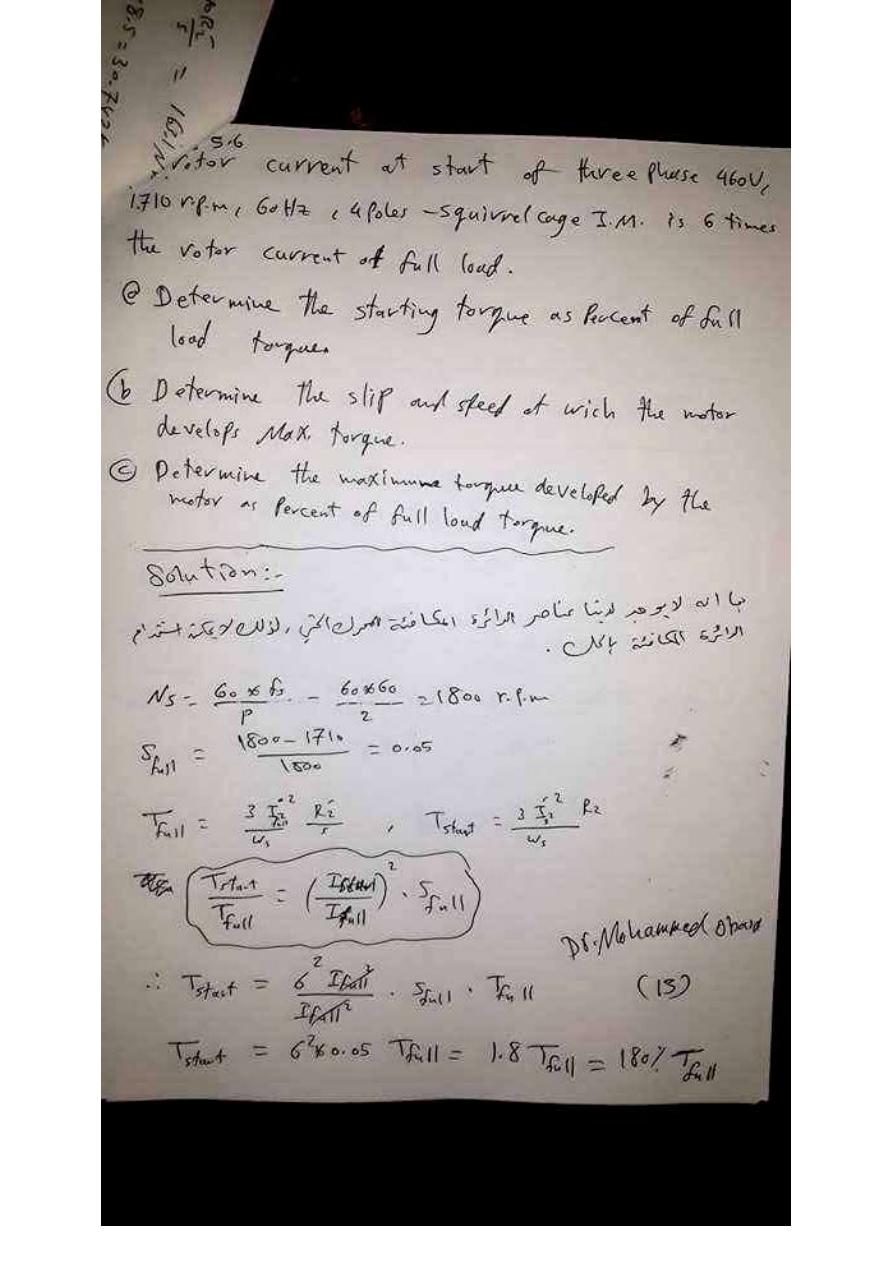 R₂ / s = 161.1 N
8.5 = 30.7
5.6
rotor current at start of three phase 460V,
1710 r.p.m, 60Hz, 4 Poles -squirrel cage I.M. is 6 times
the rotor current of full load.
ⓐ Determine the starting torque as Percent of full
load torque.
ⓑ Determine the slip and speed at wich the motor
develops Max. torque.
ⓒ Determine the maximume torque developed by the
motor as Percent of full load torque.
Solution:-
بما انه لا يوجد لدينا عناصر الدائرة المكافئة للمحرك الحثي , لذلك لا يمكن استخدام
الدائرة المكافئة بالحل .
Ns = 60 * fs / P - 60*60 / 2 = 1800 r.p.m
Sfull = 1800 - 1710 / 1800 = 0.05
Tfull = 3 I₂'² / ωs R₂' / s , Tstart = 3 I₂'² / ωs R₂
Tstart / Tfull = (Istart / Ifull)² . Sfull
Dr. Mohammed Obaid
∴ Tstart = 6² Ifull² / Ifull² . Sfull . Tfull (13)
Tstart = 6² * 0.05 Tfull = 1.8 Tfull = 180% Tfull